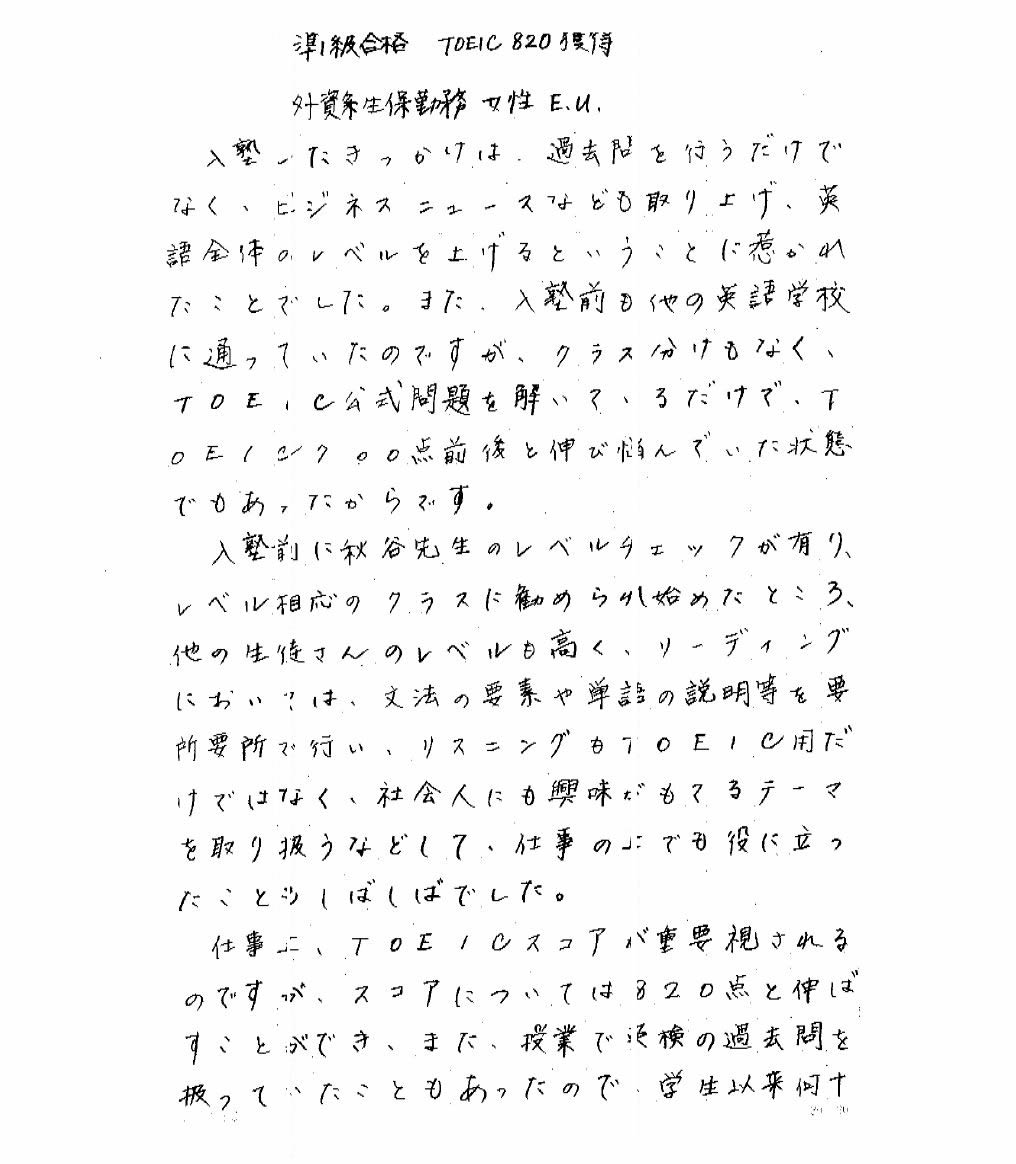 準1級合格 TOEIC 820獲得
外資系生保勤務 女性 E.U.
入塾したきっかけは、過去問を行うだけで
なく、ビジネスニュースなども取り上げ、英
語全体のレベルを上げるということに惹かれ
たことでした。また、入塾前も他の英語学校
に通っていたのですが、クラス分けもなく、
TOEIC公式問題を解いているだけで、T
OEIC700点前後と伸び悩んでいた状態
でもあったからです。
入塾前に秋谷先生のレベルチェックが有り、
レベル相応のクラスに勧められ始めたところ、
他の生徒さんのレベルも高く、リーディング
においては、文法の要素や単語の説明等を要
所要所で行い、リスニングもTOEIC用だ
けではなく、社会人にも興味がもてるテーマ
を取り扱うなどして、仕事の上でも役に立っ
たことがしばしばでした。
仕事上、TOEICスコアが重要視される
のですが、スコアについては820点と伸ば
すことができ、また、授業で英検の過去問を
扱っていたこともあったので、学生以来何十